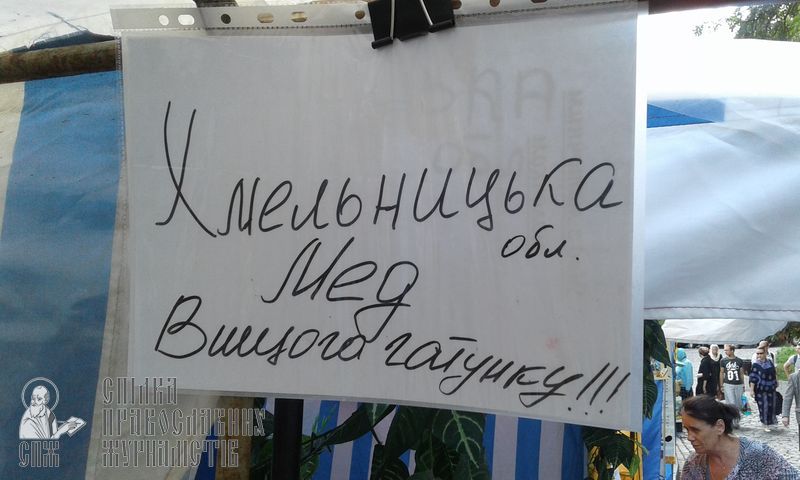 Хмельницька
обл.
Мед
Вищого гатунку!!!
СПІЛКА
ПРАВОСЛАВНИХ
ЖУРНАЛІСТІВ
СПЖ